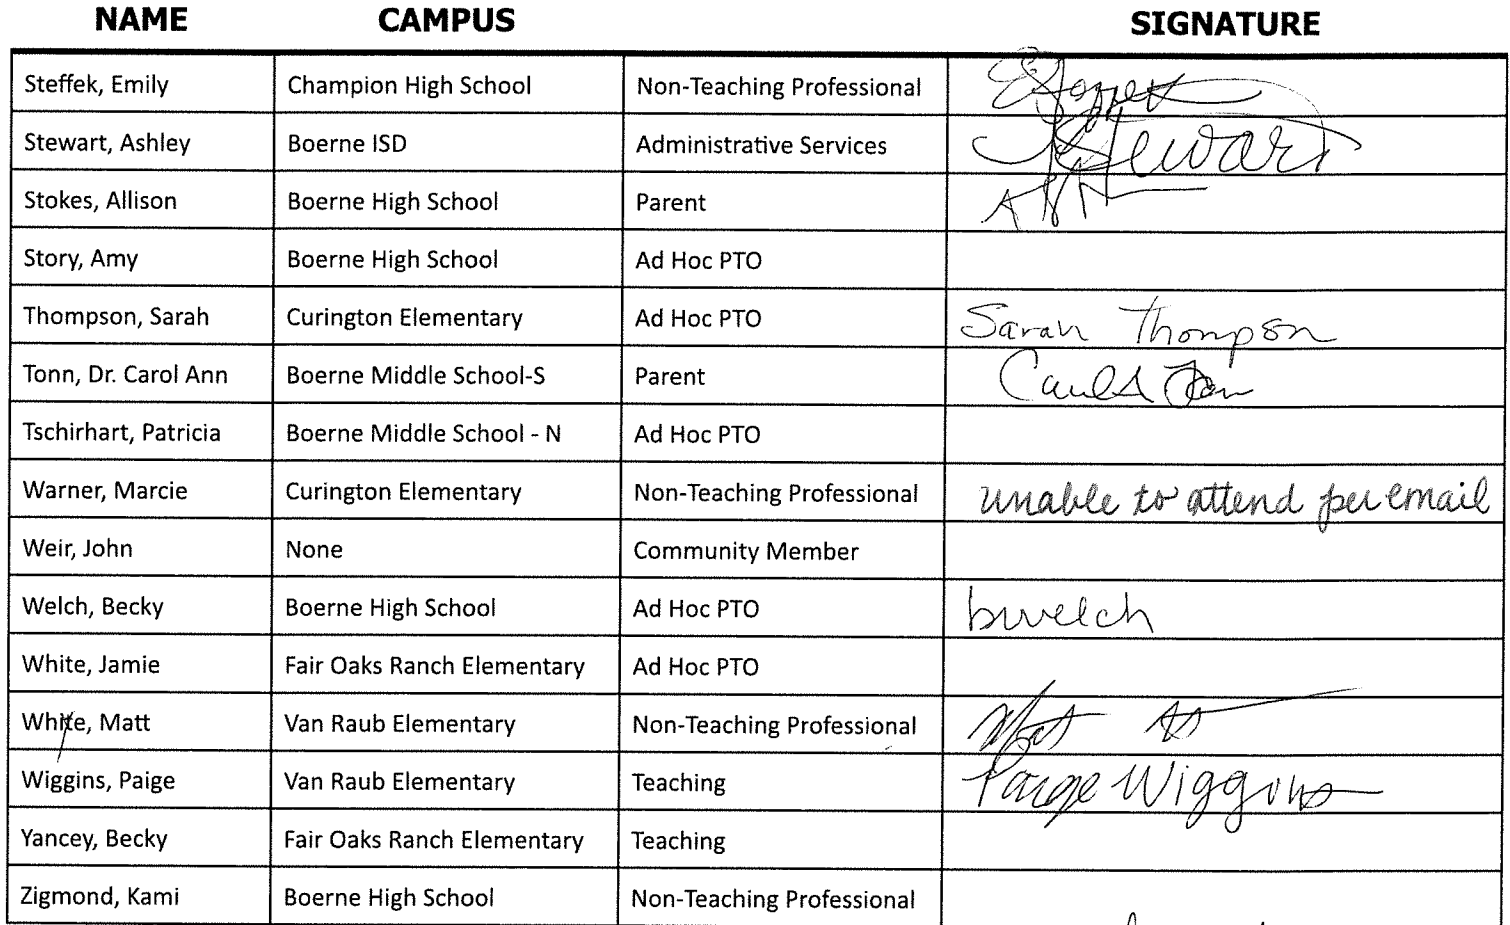 NAME CAMPUS SIGNATURE
Steffek, Emily Champion High School Non-Teaching Professional
Stewart, Ashley Boerne ISD Administrative Services Stewart
Stokes, Allison Boerne High School Parent
Story, Amy Boerne High School Ad Hoc PTO
Thompson, Sarah Curington Elementary Ad Hoc PTO Sarah Thompson
Tonn, Dr. Carol Ann Boerne Middle School-S Parent
Tschirhart, Patricia Boerne Middle School - N Ad Hoc PTO
Warner, Marcie Curington Elementary Non-Teaching Professional unable to attend per email
Weir, John None Community Member
Welch, Becky Boerne High School Ad Hoc PTO bwelch
White, Jamie Fair Oaks Ranch Elementary Ad Hoc PTO
White, Matt Van Raub Elementary Non-Teaching Professional
Wiggins, Paige Van Raub Elementary Teaching Paige Wiggins
Yancey, Becky Fair Oaks Ranch Elementary Teaching
Zigmond, Kami Boerne High School Non-Teaching Professional